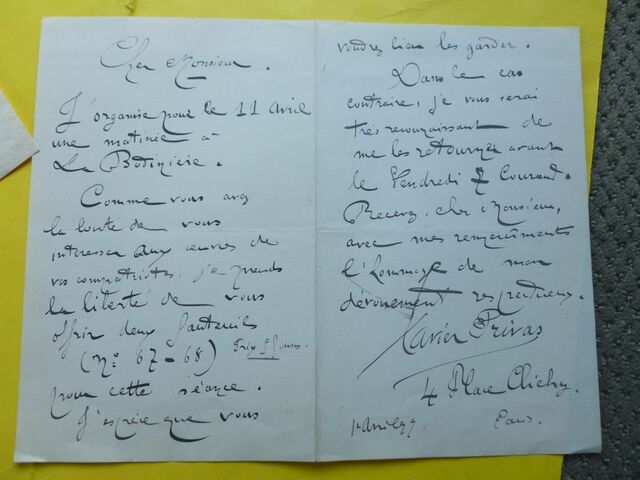 Cher Monsieur.
J'organise pour le 11 Avril
une matinée à
La Bodinière.
Comme vous avez
la bonté de vous
interesser aux œuvres de
vos compatriotes, je prends
la liberté de vous
offrir deux fauteuils
(No: 67-68) Prix
pour cette séance.
J'espère que vous
voudrez bien les garder.
Dans le cas
contraire, je vous serai
très reconnaissant de
me les retourner avant
le Vendredi 7 Courant.
Recevez, cher Monsieur,
avec mes remerciements
l'hommage de mon
dévouement respectueux.
Xavier Privas
4 Place Clichy.
Paris.